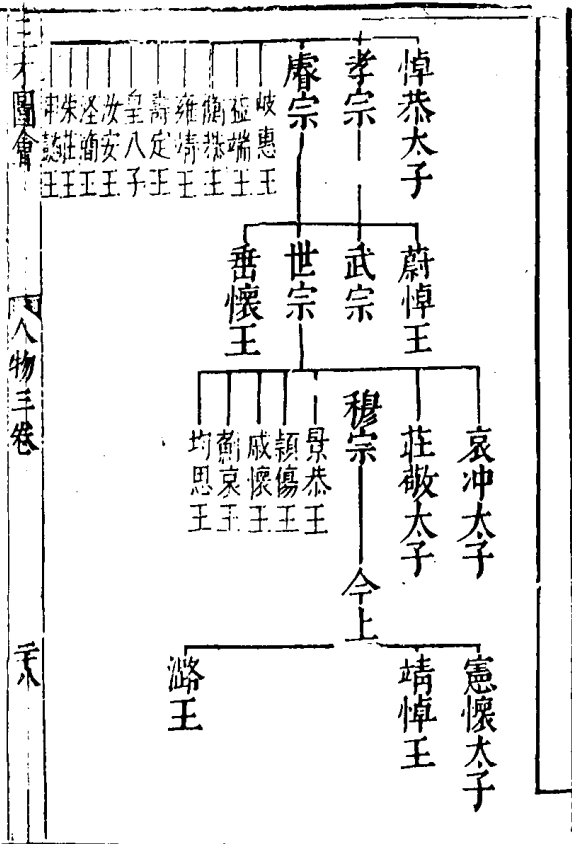 悼恭太子
孝宗
睿宗
岐惠王
益端王
衡恭王
雍靖王
壽定王
皇八子
汝安王
涇簡王
榮莊王
申懿王
蔚悼王
武宗
世宗
岳懷王
哀冲太子
莊敬太子
穆宗
景恭王
潁傷王
戚懷王
薊哀王
均思王
今上
憲懷太子
靖悼王
潞王
三才圖會
人物三卷